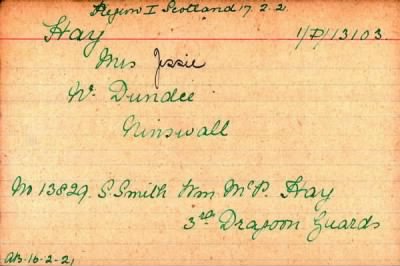 Region I Scotland 17.2.2.
Hay 1/P/13103
Mrs Jessie
W. Dundee
Ninswall
No 13829. S. Smith Wm McP. Hay
3rd Dragoon Guards
AB. 16-2-21